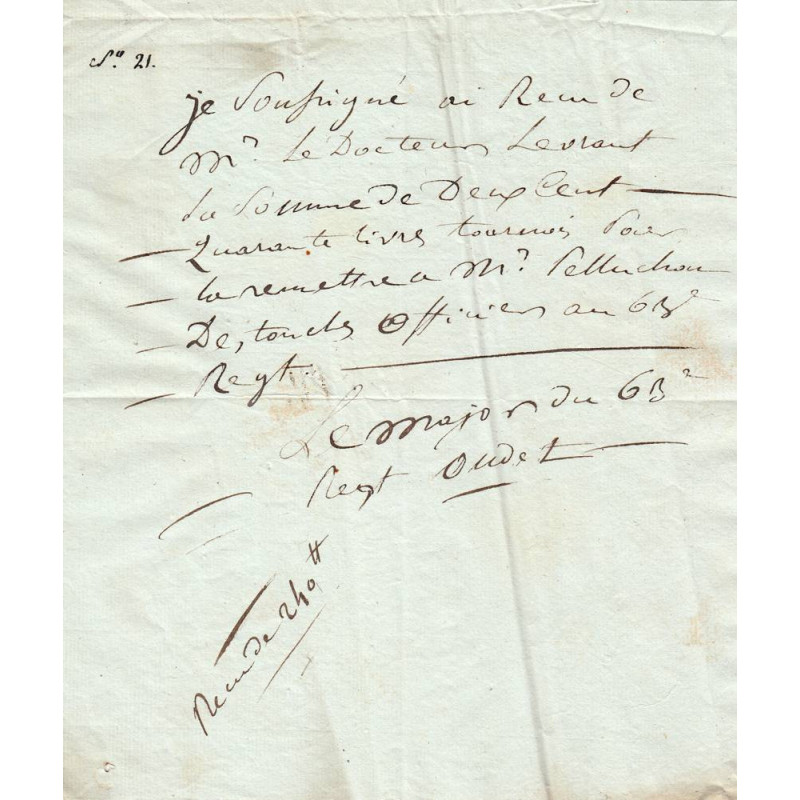 N.° 21.
je Soussigné ai Recu de
M.r Le Docteur Levrant
La Somme de Deux Cent
Quarante livres tournois Pour
La remettre a M.r Pelluchon
Destouches Officiers au 63.e
Regt.
Le major du 63.e
Regt Oudet
Recu de 240 ₶